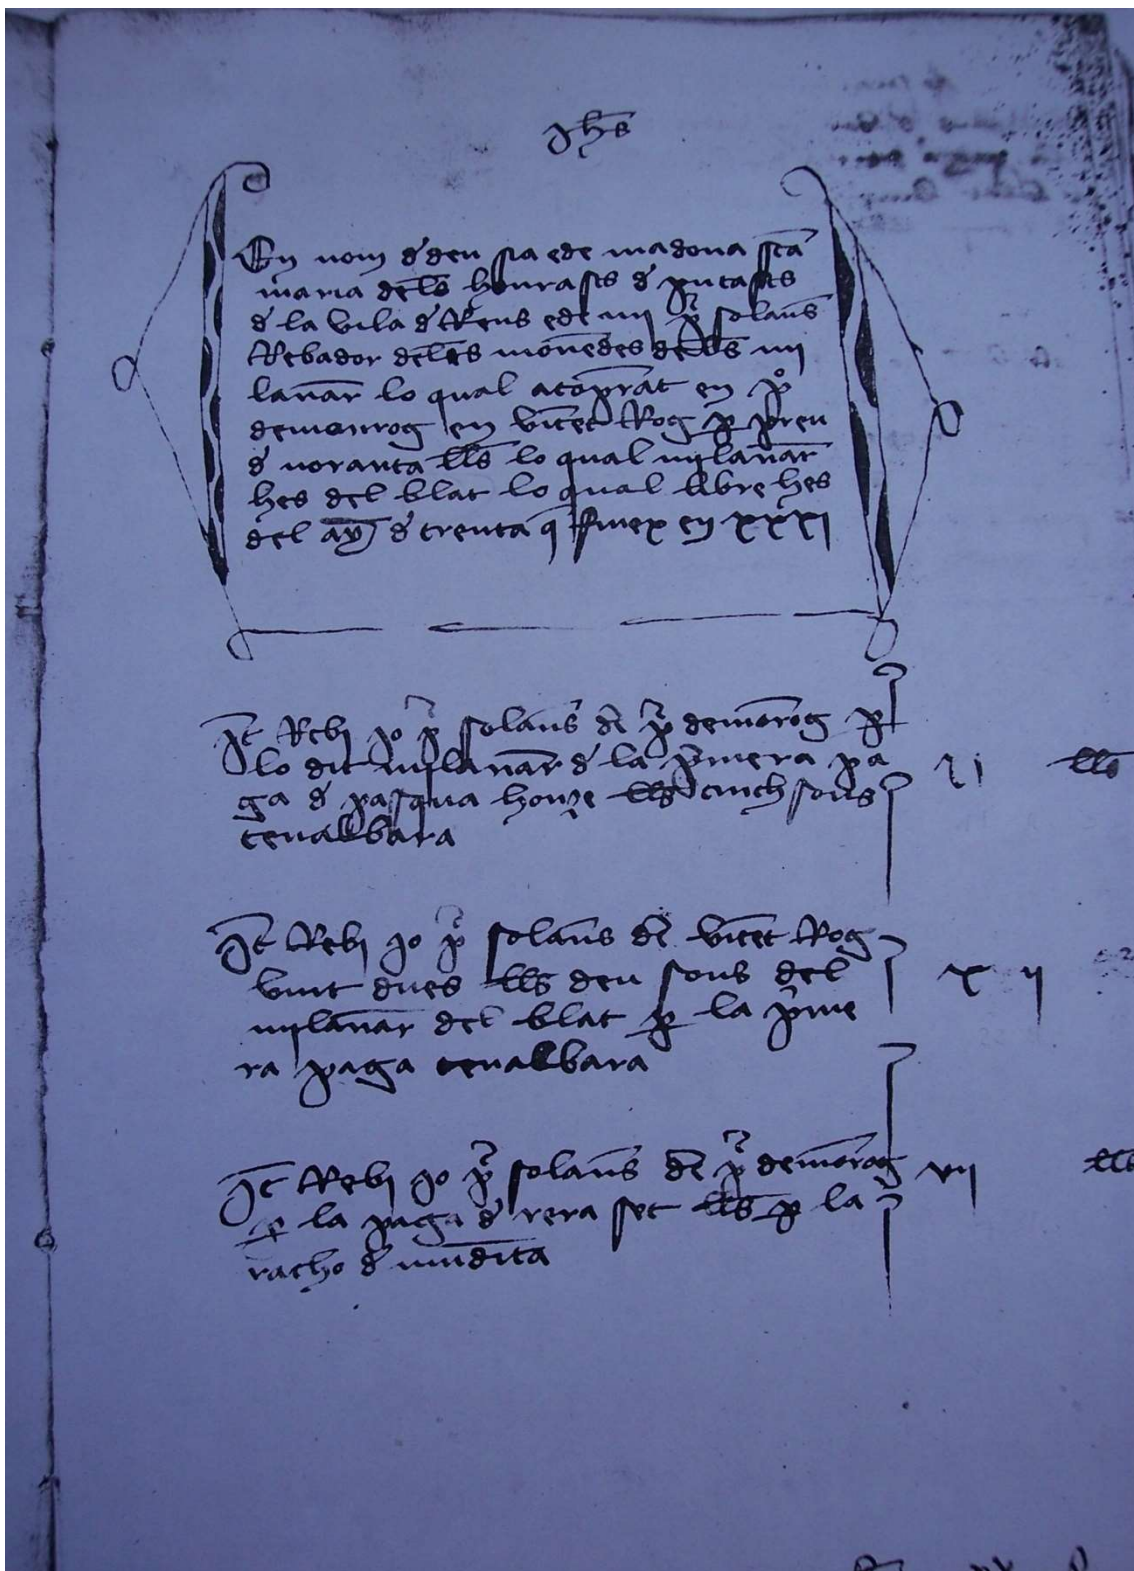 Jhs
En nom de deu sia e de madona scta
maria dels honrasts de putasts
de la vila de Reus e de mi pr solans
Rebador deles monedes dels mi
lanar lo qual a comprat en po
demonrog en vicet Rog per preu
de noranta lls lo qual milanar
hes del blat lo qual libre hes
del any de trenta q finex en xxxi
It Rebi jo pr solans den pr demorog per
lo dit milanar de la primera pa
ga de pasqua honze lls cinch sous
ten albara
xi lls
It Rebi jo pr solans den vicet Rog
vint dues lls deu sous del
milanar del blat per la prime
ra paga ten albara
x ii
It Rebi jo pr solans den pr demorog
per la paga de set lls per la
racho de mudita
vii lls